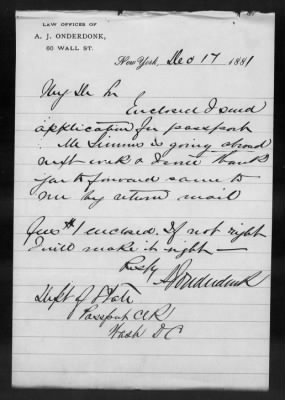 LAW OFFICES OF
A. J. ONDERDONK,
60 WALL ST.
New York, Dec 17 1881
My Dr Sr
Enclosed I send
application for passport
Mr Simms is going abroad
next week & I will thank
you to forward same to
me by return mail
$1 enclosed. If not right
I will make it right —
Resfy
AJOnderdonk
Dept of State
Passport Clk
Wash DC